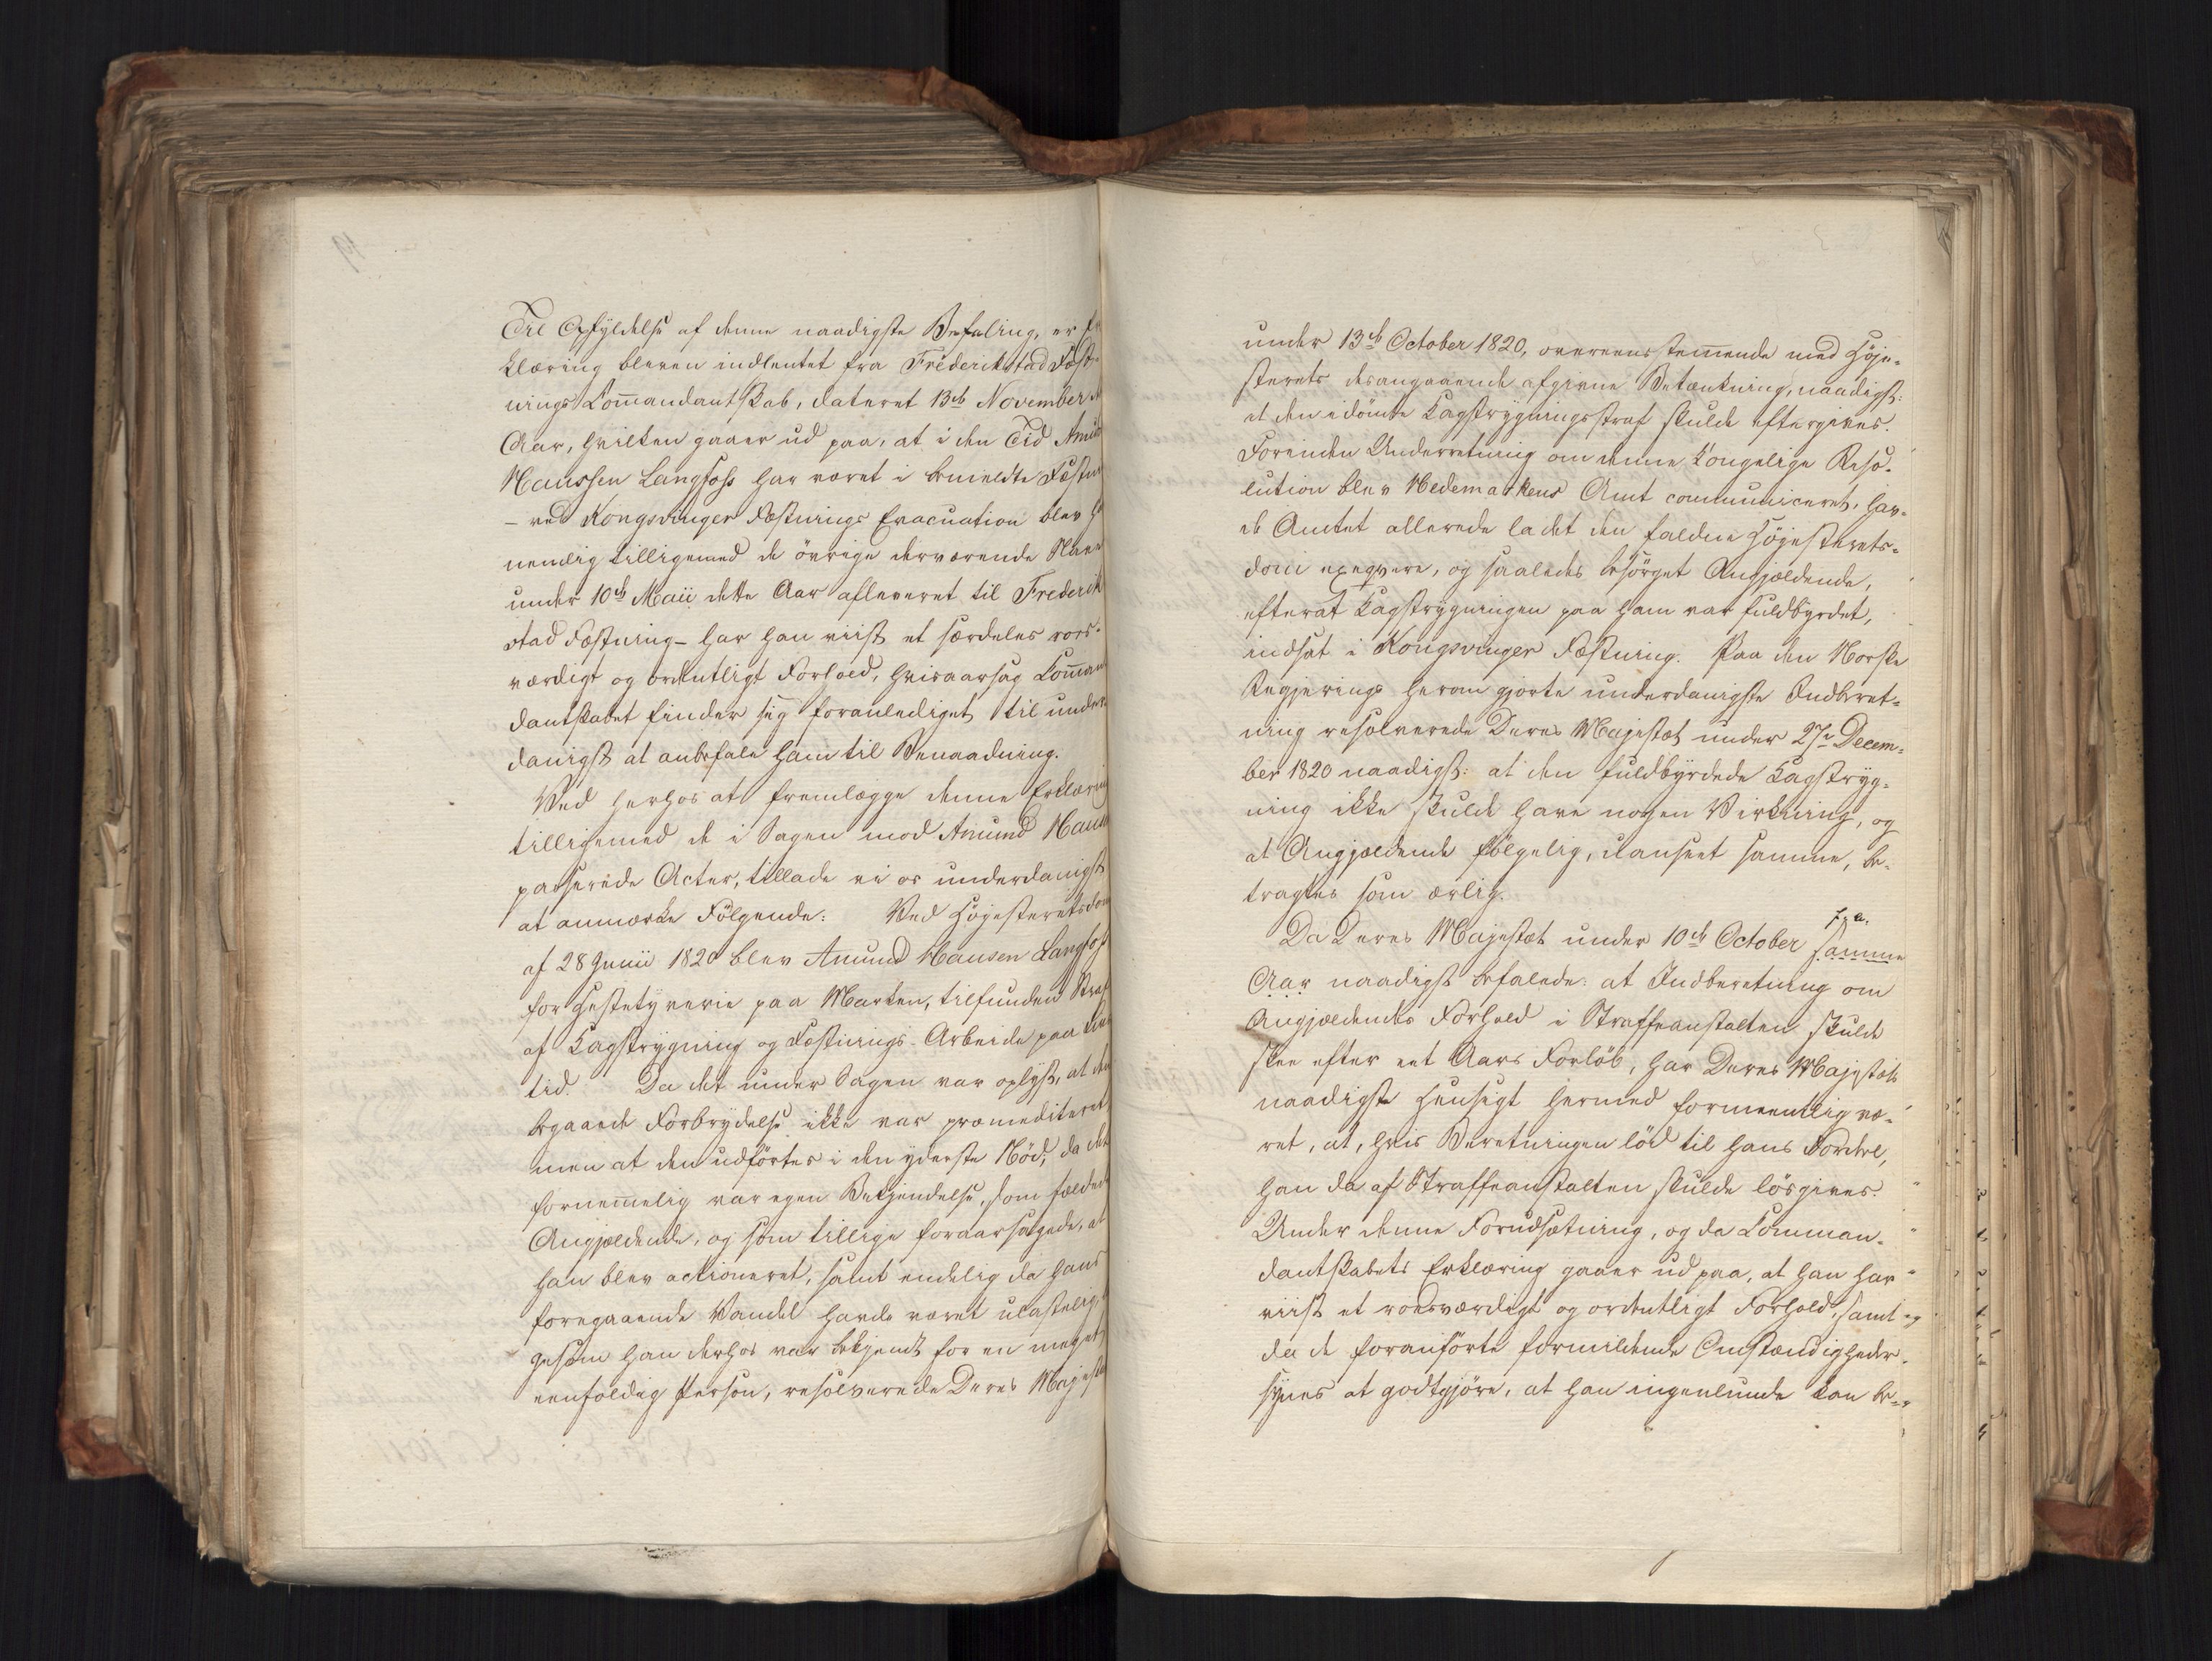 Til Opfyldelse af denne naadigste Befaling, er
klæring bleven indhentet fra Frederikstad Fæst-
nings Com̄andantskab, dateret 13de November
Aar, hvilken gaaer ud paa, at i den Tid Amund
Hanssen Langfoss har været i bemeldte Fæstning
– ved Kongsvinger Fæstnings Evacuation blev
nemlig tilligemed de övrige derværende Slaver
under 10de Maii dette Aar afleveret til Frederik
stad Fæstning – har han viist et særdeles roes-
værdigt og ordentligt Forhold, hvisaarsag Com̄an
dantskabet finder sig foranlediget til under
danigst at anbefale ham til Benaadning.
Ved herhos at fremlægge denne Erklæring
tilligemed de i Sagen mod Amund Hansen
passerede Acter, tillade vi os underdanigst
at anmærke Fölgende: Ved Höjesteretsdom
af 28 Junii 1820 blev Amund Hansen Langfoss
for Hestetyverie paa Marken, tilfunden Straf
af Kagstrygning og Fæstnings-Arbeide paa Livs
tid. Da det under Sagen var oplyst, at den
begaaede Forbrydelse ikke var præmediteret,
men at den udförtes i den yderste Nöd, da det
fornem̄elig var egen Bekjendelse, som fældede
Angjældende, og som tillige foraarsagede, at
han blev actioneret, samt endelig da hans
foregaaende Vandel havde været ulastelig,
gesom han derhos var bekjendt for en meget
eenfoldig Person, resolverede Deres Majestæt
under 13de October 1820, overeensstem̄ende med Höje-
sterets desangaaende afgivne Betænkning, naadigst:
at den idömte Kagstrygningsstraf skulde eftergives.
Forinden Underretning om denne kongelige Reso-
lution blev Hedemarkens Amt communiceret, hav-
de Amtet allerede ladet den faldne Höjesterets-
dom exeqvere, og saaledes besörget Angjældende,
efterat Kagstrygningen paa ham var fuldbyrdet,
indsat i Kongsvinger Fæstning. Paa den Norske
Regjerings herom gjorte underdanigste Indberet-
ning resolverede Deres Majestæt under 27de Decem-
ber 1820 naadigst: at den fuldbyrdede Kagstryg-
ning ikke skulde have nogen Virkning, og
at Angjældende fölgelig, uanseet samme, be-
tragtes som ærlig.
f. a.
Da Deres Majestæt under 10de October samme
Aar naadigst befalede: at Indberetning om
Angjældendes Forhold i Straffeanstalten skulde
skee efter eet Aars Forlöb, har Deres Majestæts
naadigste Hensigt hermed formeentlig væ-
ret, at, hvis Beretningen löd til hans Fordeel,
han da af Straffeanstalten skulde lösgives.
Under denne Forudsætning, og da Comman-
dantskabets Erklæring gaaer ud paa, at han har
viist et roesværdigt og ordentligt Forhold, samt
da de foranförte formildende Omstændigheder
synes at godtgjöre, at han ingenlunde kan be-